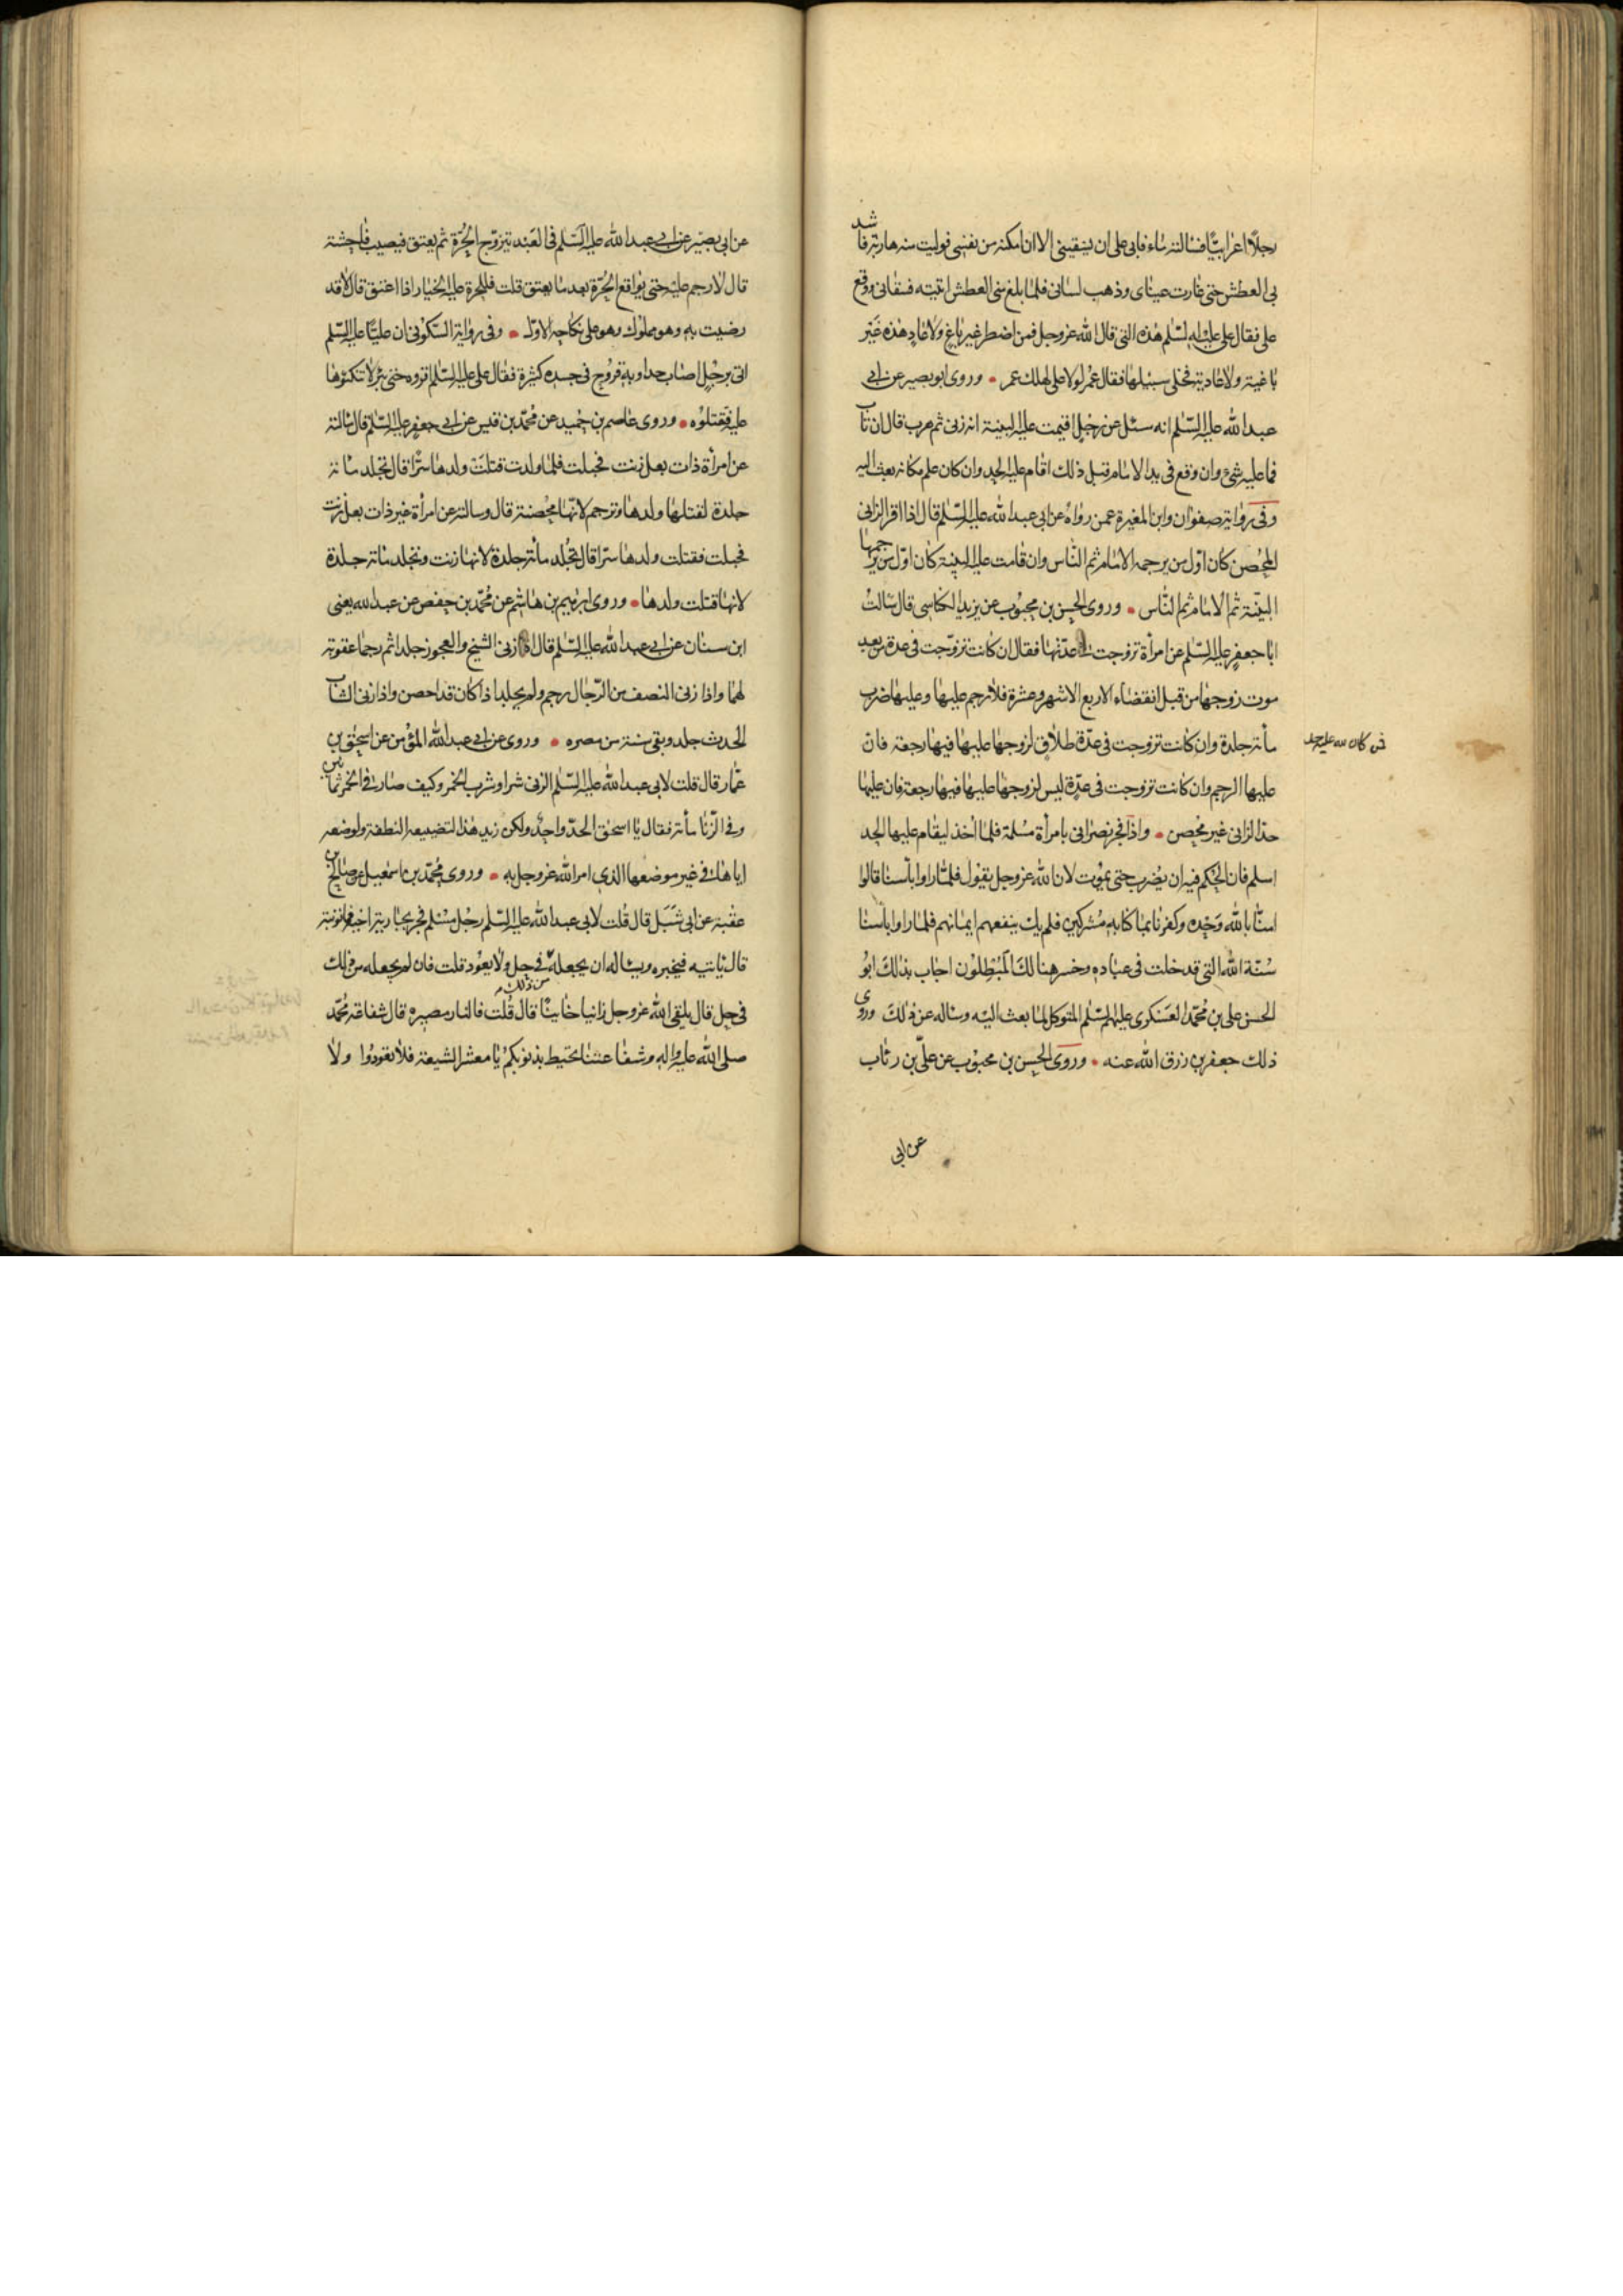 رجلا اعرابيا فسالته ماء فابى على ان يسقينى الا ان امكنه من نفسى فوليت منه هاربة فاشتد
بى العطش حتى غارت عيناى وذهب لسانى فلما بلغ منى العطش اتيته فسقانى ووقع
على فقال على عليه السلم هذه التى قال الله عز وجل فمن اضطر غير باغ ولا عاد هذه غير
باغية ولا عادية فخلى سبيلها فقال عمر لولا على لهلك عمر • وروى ابو بصير عن ابى
عبد الله عليه السلم انه سئل عن رجل اقيمت عليه البينة انه زنى ثم هرب قال ان تاب
فما عليه شئ وان وقع فى يد الامام قبل ذلك اقام عليه الحد وان كان علم مكانه بعث اليه
وفى رواية صفوان وابن المغيرة عمن رواه عن ابى عبد الله عليه السلم قال اذا اقر الزانى
المحصن كان اول من يرجمه الامام ثم الناس وان قامت عليه البينة كان اول من يرجمها
البينة ثم الامام ثم الناس • وروى الحسن بن محبوب عن يزيد الكناسى قال سالت
ابا جعفر عليه السلم عن امرأة تزوجت فى عدتها فقال ان كانت تزوجت فى عدة من بعد
موت زوجها من قبل انقضاء الاربع الاشهر وعشرة فلا رجم عليها وعليها ضرب
مأة جلدة وان كانت تزوجت فى عدة طلاق لزوجها عليها فيها رجعة فان
عليها الرجم وان كانت تزوجت فى عدة ليس لزوجها عليها فيها رجعة فان عليها
حد الزانى غير محصن • واذا فجر نصرانى بامرأة مسلمة فلما اخذ ليقام عليها الحد
اسلم فان الحكم فيه ان يضرب حتى يموت لان الله عز وجل يقول فلما راوا بأسنا قالوا
امنا بالله وحده وكفرنا بما كنا به مشركين فلم يك ينفعهم ايمانهم لما راوا بأسنا
سنة الله التى قد خلت فى عباده وخسر هنالك المبطلون اجاب بذلك ابو
الحسن على بن محمد العسكرى عليهم السلم المتوكل لما بعث اليه وساله عن ذلك وروى
ذلك جعفر بن رزق الله عنه • وروى الحسن بن محبوب عن على بن رئاب
عن ابى
عن ابى بصير عن ابى عبد الله عليه السلم فى العبد يتزوج الحرة ثم يعتق فيصيب فاحشة
قال لا رجم عليه حتى يواقع الحرة بعد ما يعتق قلت فللحرة عليه الخيار اذا اعتق قال لا قد
رضيت به وهو مملوك وهو على نكاحه الاول • وفى رواية السكونى ان عليا عليه السلم
اتى برجل اصاب حدا وبه قروح فى جسده كثيرة فقال على عليه السلم اقروه حتى يبرأ لا تنكئوها
عليه فتقتلوه • وروى عاصم بن حميد عن محمد بن قيس عن ابى جعفر عليه السلم قال سالته
عن امرأة ذات بعل زنت فحبلت فلما ولدت قتلت ولدها سرا قال تجلد مائة
جلدة لقتلها ولدها وترجم لانها محصنة قال وسالته عن امرأة غير ذات بعل زنت
فحبلت فقتلت ولدها سرا قال تجلد مأة جلدة لانها زنت وتجلد مائة جلدة
لانها قتلت ولدها • وروى ابرهيم بن هاشم عن محمد بن حفص عن عبد الله يعنى
ابن سنان عن ابى عبد الله عليه السلم قال اذا زنى الشيخ والعجوز جلدا ثم رجما عقوبة
لهما واذا زنى النصف من الرجال رجم ولم يجلد اذا كان قد احصن واذا زنى الشاب
الحدث جلد ونفى سنة من مصره • وروى عن ابى عبد الله المؤمن عن اسحق بن
عمار قال قلت لابى عبد الله عليه السلم الزنى شر او شرب الخمر وكيف صارت فى الخمر ثمانين
وفى الزنا مأة فقال يا اسحق الحد واحد ولكن زيد هذا لتضييعه النطفة ولوضعه
اياها فى غير موضعها الذى امر الله عز وجل به • وروى محمد بن اسمعيل عن صالح بن
عقبة عن ابى شبل قال قلت لابى عبد الله عليه السلم رجل مسلم فجر بجارية اخيه فما توبته
قال ياتيه فيخبره ويساله ان يجعله فى حل ولا يعود قلت فان لم يجعله من ذلك
فى حل قال يلقى الله عز وجل زانيا خاينا قال قلت فالنار مصيره قال شفاعة محمد
صلى الله عليه واله وشفاعتنا تحيط بذنوبكم يا معشر الشيعة فلا تعودوا ولا